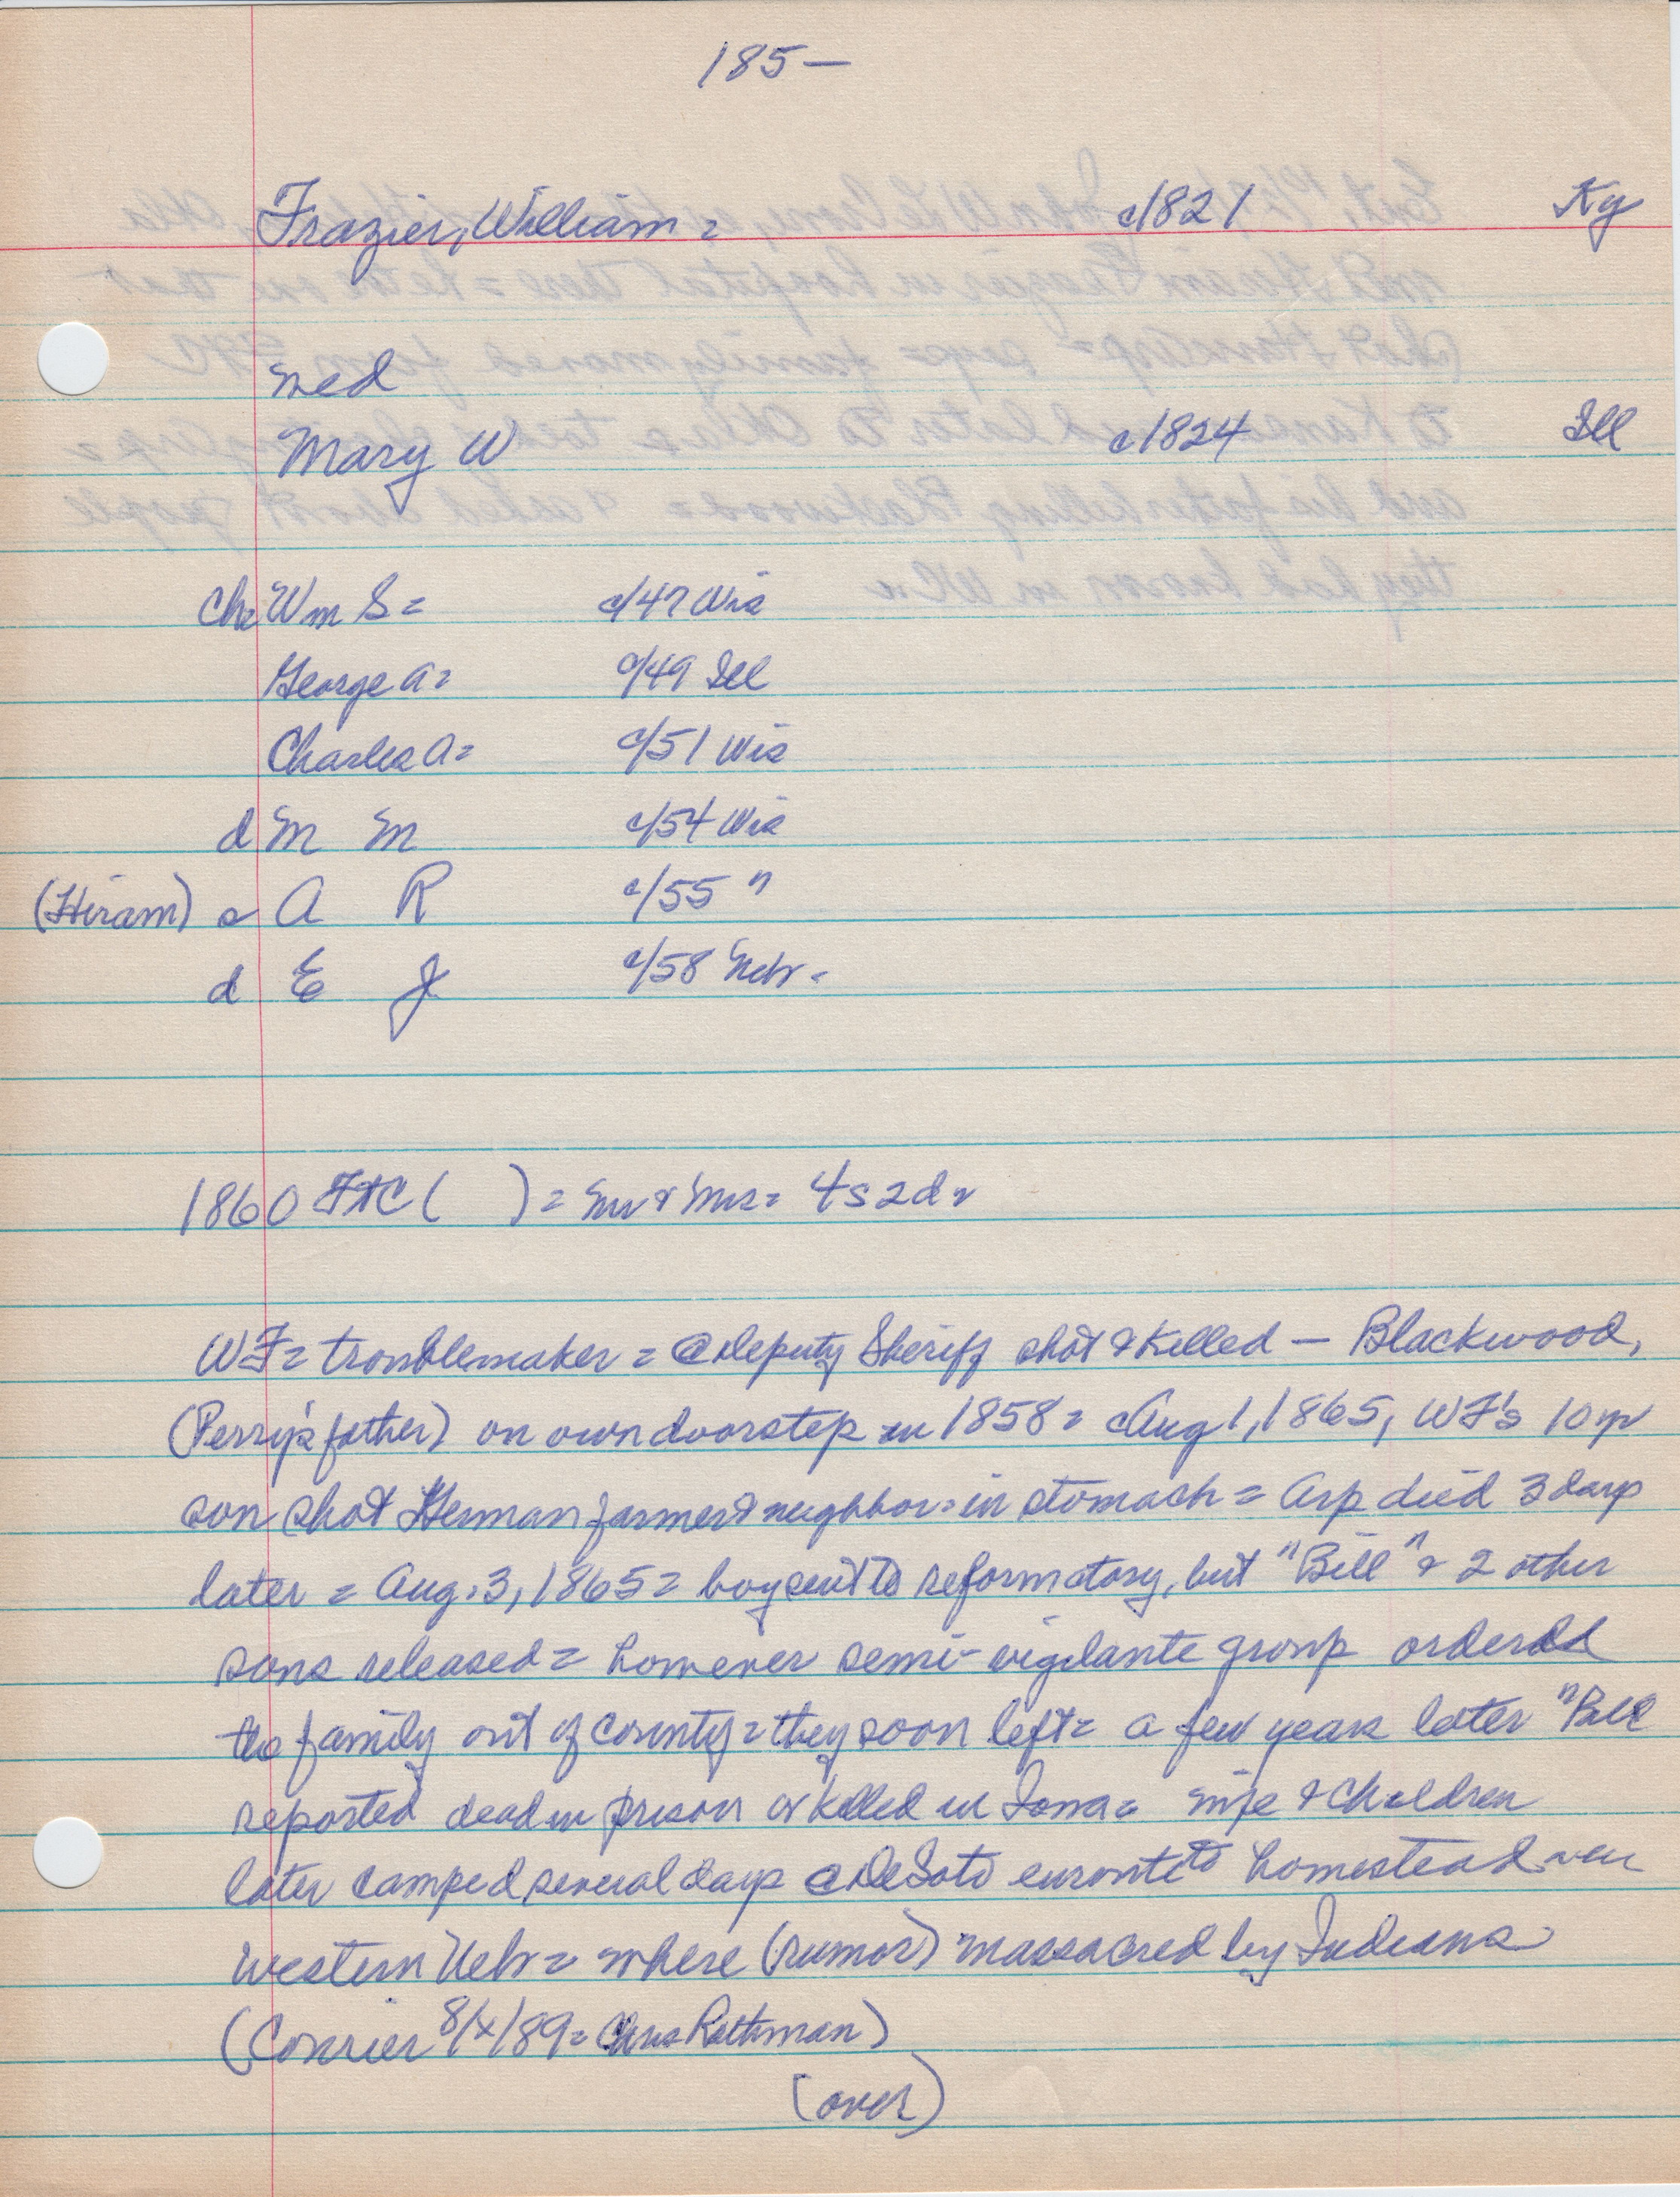 185—
Frazier, William = c/1821 Ky
med
Mary W c/1824 Ill
Ch = Wm S = c/47 Wis
George A = c/49 Ill
Charles A = c/51 Wis
d M M c/54 Wis
(Hiram) s A R c/55 "
d E J c/58 Nebr.
1860 FtC ( ) = Mr & Mrs = 4s 2d =
WF = troublemaker = @ Deputy Sheriff shot & killed — Blackwood,
(Perry's father) on own doorstep in 1858 = Aug 1, 1865, WF's 10 yr
son shot Herman farmer & neighbor = in stomach = Arp died 3 days
later = Aug. 3, 1865 = boy sent to reformatory, but "Bill" & 2 other
sons released = however semi-vigilante group ordered
the family out of county = they soon left = a few years later "Bill
reported dead in prison or killed in Iowa = wife & children
later camped several days @ DeSoto enroute to homestead in
western Nebr = where (rumor) massacred by Indians
(Courier 8/x/89 = Chris Rathman)
(over)